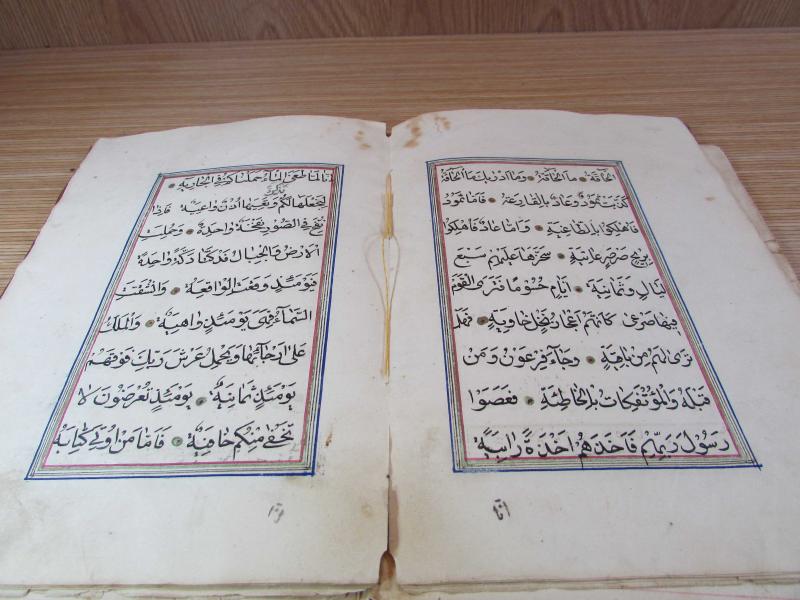 اَلْحَاقَّةُ • مَا الْحَاقَّةُ • وَمَا اَدْرٰيكَ مَا الْحَاقَّةُ
كَذَّبَتْ ثَمُودُ وَعَادٌ بِالْقَارِعَةِ • فَاَمَّا ثَمُودُ
فَاُهْلِكُوا بِالطَّاغِيَةِ • وَاَمَّا عَادٌ فَاُهْلِكُوا
بِرِيحٍ صَرْصَرٍ عَاتِيَةٍ • سَخَّرَهَا عَلَيْهِمْ سَبْعَ
لَيَالٍ وَثَمَانِيَةَ • اَيَّامٍ حُسُومًا فَتَرَى الْقَوْمَ
فِيهَا صَرْعٰى كَاَنَّهُمْ اَعْجَازُ نَخْلٍ خَاوِيَةٍ • فَهَلْ
تَرٰى لَهُمْ مِنْ بَاقِيَةٍ • وَجَاءَ فِرْعَوْنُ وَمَنْ
قَبْلَهُ وَالْمُؤْتَفِكَاتُ بِالْخَاطِئَةِ • فَعَصَوْا
رَسُولَ رَبِّهِمْ فَاَخَذَهُمْ اَخْذَةً رَابِيَةً
انا
اِنَّا لَمَّا طَغَى الْمَاءُ حَمَلْنَاكُمْ فِي الْجَارِيَةِ •
لِنَجْعَلَهَا لَكُمْ تذكرة وَتَعِيَهَا اُذُنٌ وَاعِيَةٌ • فَاِذَا
نُفِخَ فِي الصُّورِ نَفْخَةٌ وَاحِدَةٌ • وَحُمِلَتِ
الْاَرْضُ وَالْجِبَالُ فَدُكَّتَا دَكَّةً وَاحِدَةً
فَيَوْمَئِذٍ وَقَعَتِ الْوَاقِعَةُ • وَانْشَقَّتِ
السَّمَاءُ فَهِيَ يَوْمَئِذٍ وَاهِيَةٌ • وَالْمَلَكُ
عَلٰى اَرْجَائِهَا وَيَحْمِلُ عَرْشَ رَبِّكَ فَوْقَهُمْ
يَوْمَئِذٍ ثَمَانِيَةٌ • يَوْمَئِذٍ تُعْرَضُونَ لَا
تَخْفٰى مِنْكُمْ خَافِيَةٌ • فَاَمَّا مَنْ اُوتِيَ كِتَابَهُ